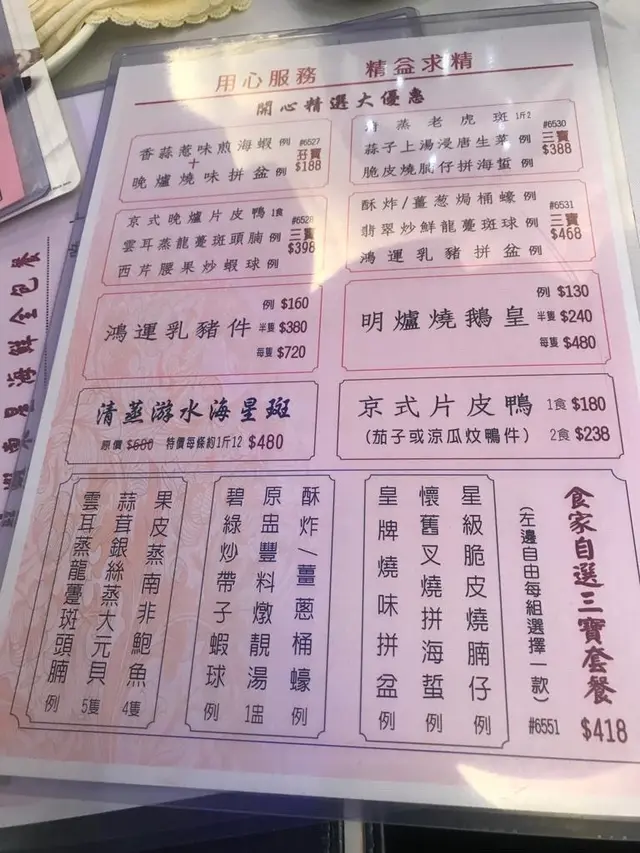 用心服務 精益求精
開心精選大優惠
香蒜惹味煎海蝦 例 #6527
+
孖寶
晚爐燒味拼盆 例 $188
蒸老虎斑 1斤2 #6530
蒜子上湯浸唐生菜 例 三寶
$388
脆皮燒腩仔拼海蜇 例
京式晚爐片皮鴨 1食 #6528
雲耳蒸龍躉斑頭腩 例 三寶
$398
西芹腰果炒蝦球 例
酥炸/薑葱焗桶蠔 例 #6531
翡翠炒鮮龍躉斑球 例 三寶
$468
鴻運乳豬拼盆 例
鴻運乳豬件
例 $160
半隻 $380
每隻 $720
明爐燒鵝皇
例 $130
半隻 $240
每隻 $480
清蒸游水海星斑
原價 $680 特價每條約1斤12 $480
京式片皮鴨 1食 $180
(茄子或涼瓜炆鴨件) 2食 $238
食家自選三寶套餐 $418
(左邊自由每組選擇一款) #6551
星級脆皮燒腩仔 例
懷舊叉燒拼海蜇 例
皇牌燒味拼盆 例
酥炸/薑蔥桶蠔 例
原盅豐料燉靚湯 1盅
碧綠炒帶子蝦球 例
果皮蒸南非鮑魚 4隻
蒜茸銀絲蒸大元貝 5隻
雲耳蒸龍躉斑頭腩 例
星海鮮全包餐